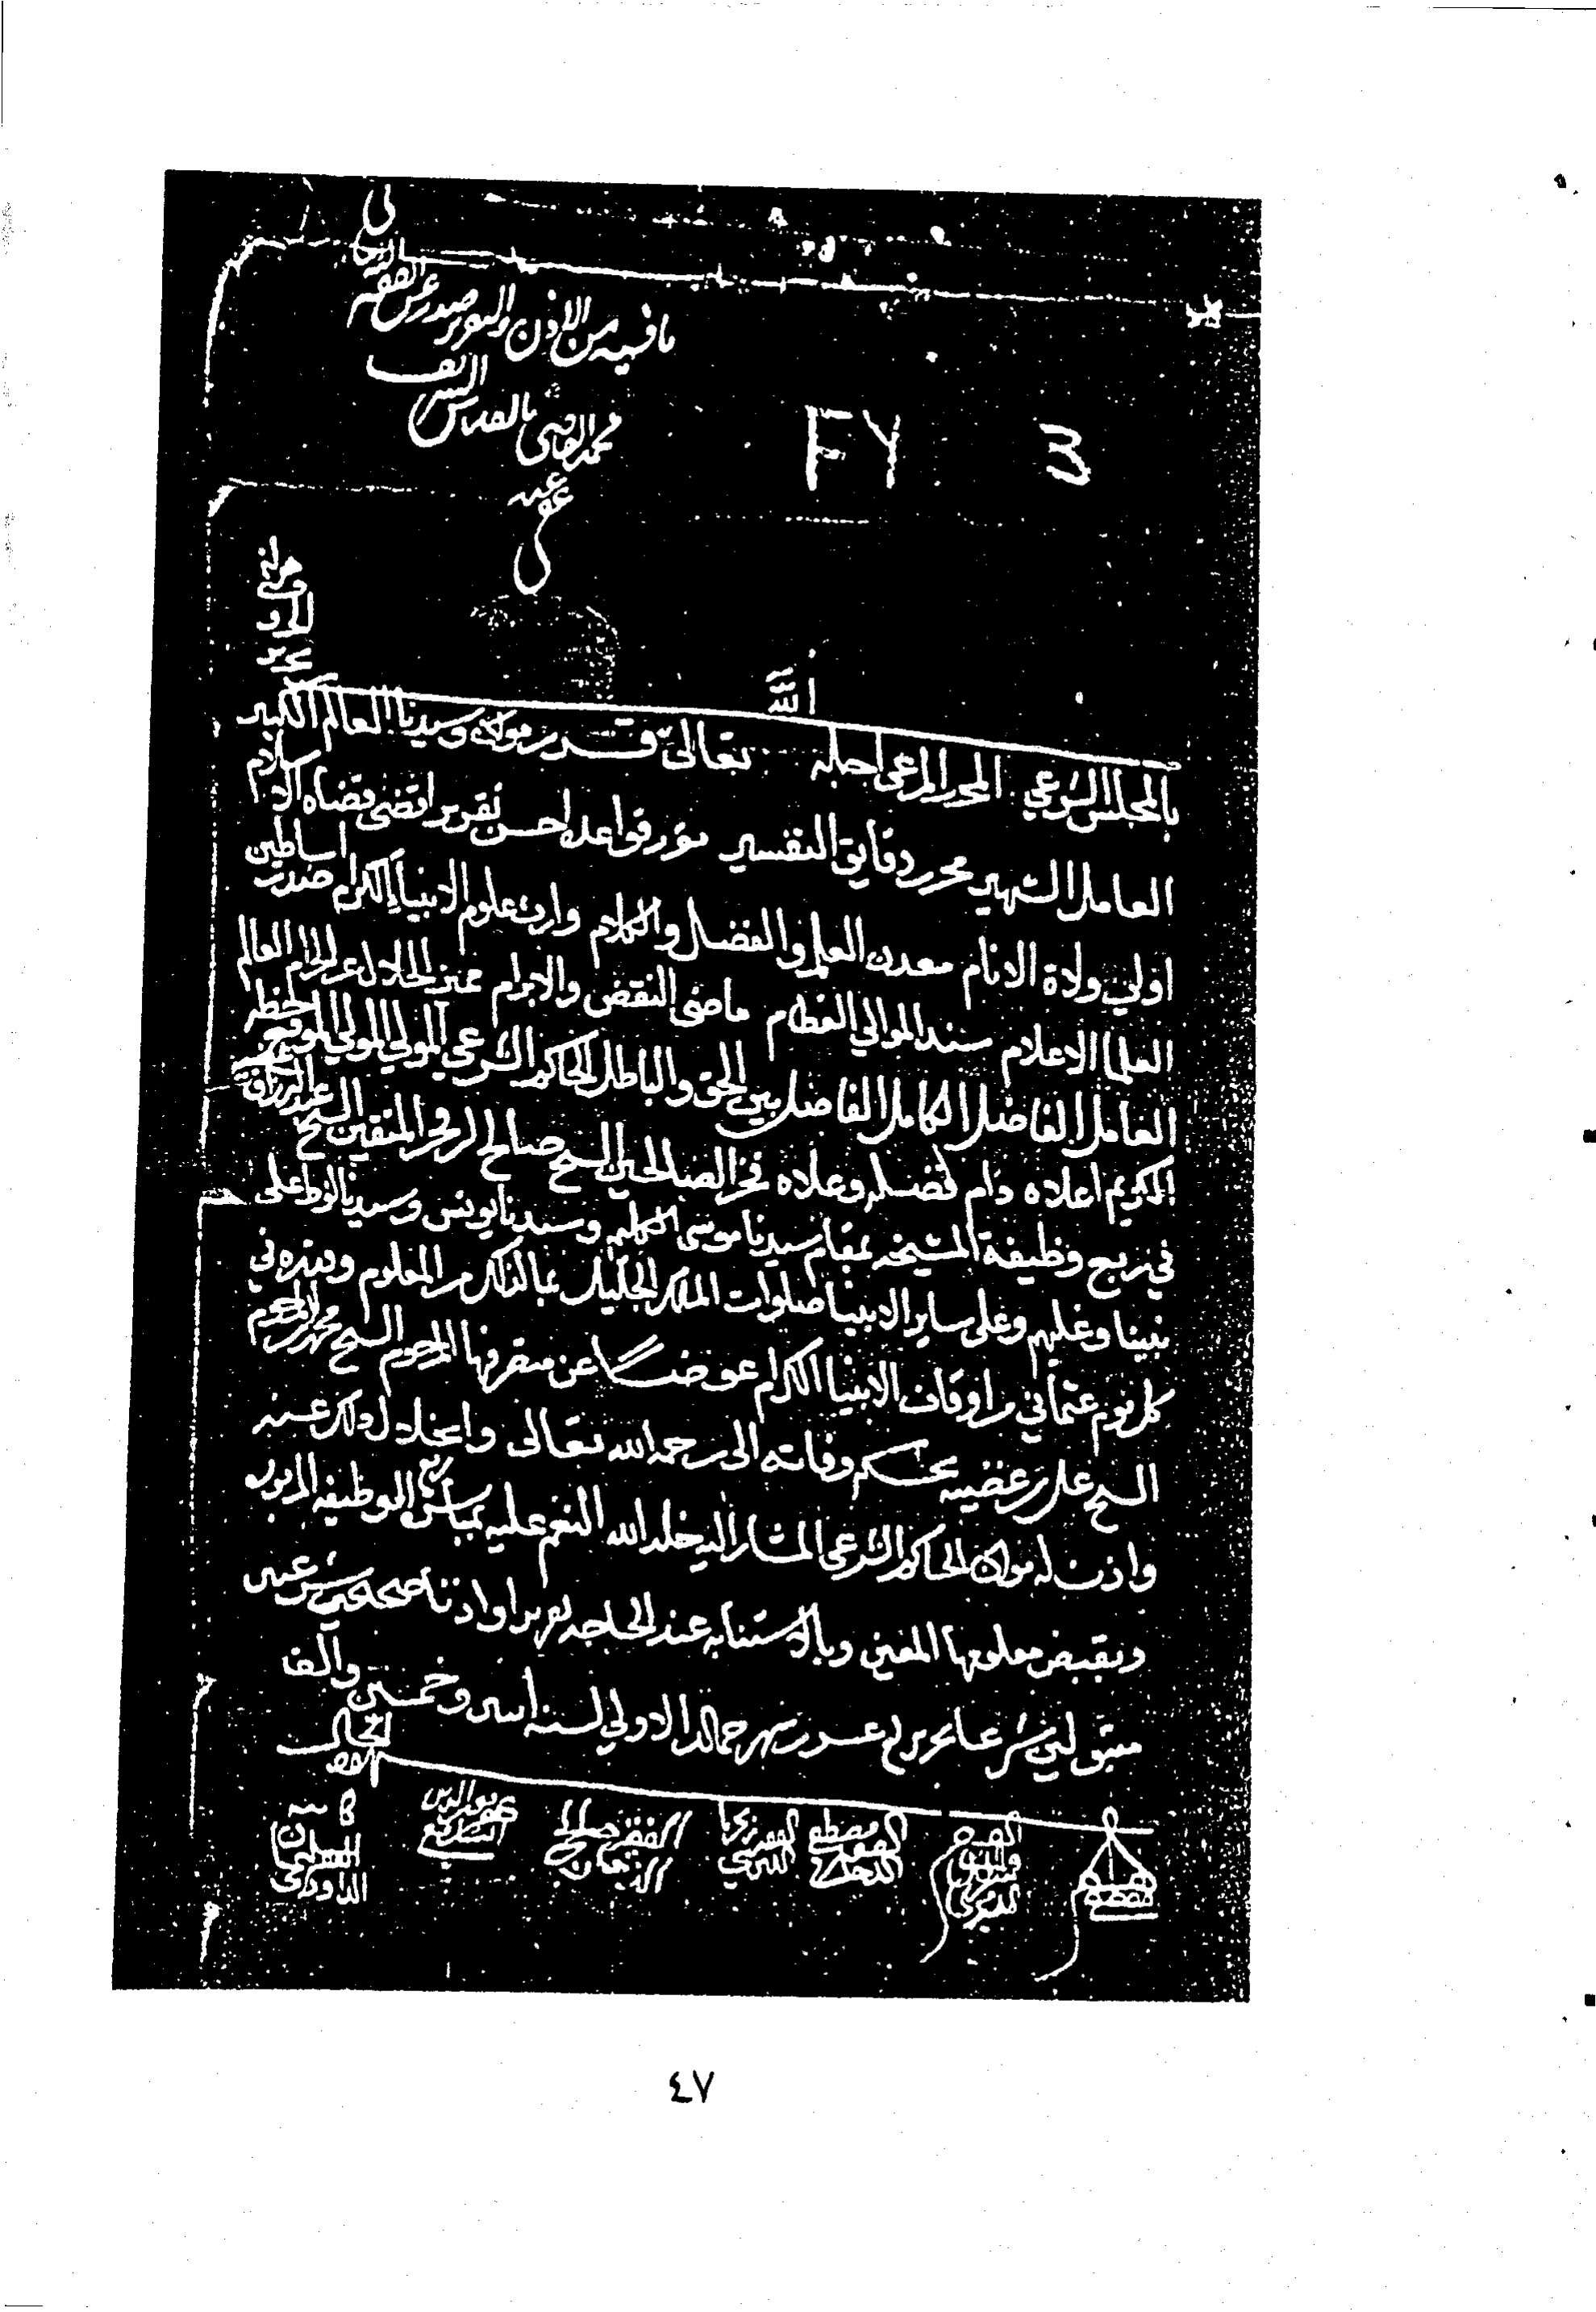 ما فيه من الاذن والتقرير صدر عن الفقير
محمد القاضي بالقدس الشريف
عفي عنه
FY 3
الله
بالمجلس الشرعي المحرر المرعي اجله تعالى قرر مولانا وسيدنا العالم الكبير
العامل الشهير محرر دقايق التفسير مقرر قواعده احسن تقرير اقضى قضاة الاسلام
اولي ولاة الانام معدن العلم والفضل والكلام وارث علوم الانبياء الكرام صدر اساطين
العلما الاعلام سند الموالي العظام ماضي النقض والابرام مميز الحلال عن الحرام العالم
العامل الفاضل الكامل الفاصل بين الحق والباطل الحاكم الشرعي المولى المولي الموقع خطه
الكريم اعلاه دام فضله وعلاه فخر الصالحين الشيخ صالح ابن فخر المتقين الشيخ عبد الرزاق
في ربع وظيفة المشيخه بمقام سيدنا موسى الكليم وسيدنا يونس وسيدنا لوط على
نبينا وعليهم وعلى ساير الانبيا صلوات الملك الجليل بما لذلك من المعلوم وقدره في
كل يوم عثماني من اوقاف الانبيا الكرام عوضا عن متصرفها المرحوم الشيخ محمد ابن المرحوم
الشيخ علي بن غضيه بحكم وفاته الى رحمة الله تعالى وانحلال ذلك عنه
واذن له مولانا الحاكم الشرعي المشار اليه خلد الله النعم عليه بمباشرة ربع الوظيفه المزبوره
وبقبض معلومها المعين وبالاستنابه عند الحاجه تقريرا واذنا صحيحين شرعيين
مقبولين شرعا تحريرا في شهر جمادى الاولى لسنه وخمسين والف
الفقير مصطفى
الفقير زكريا
الفقير صالح
٤٧